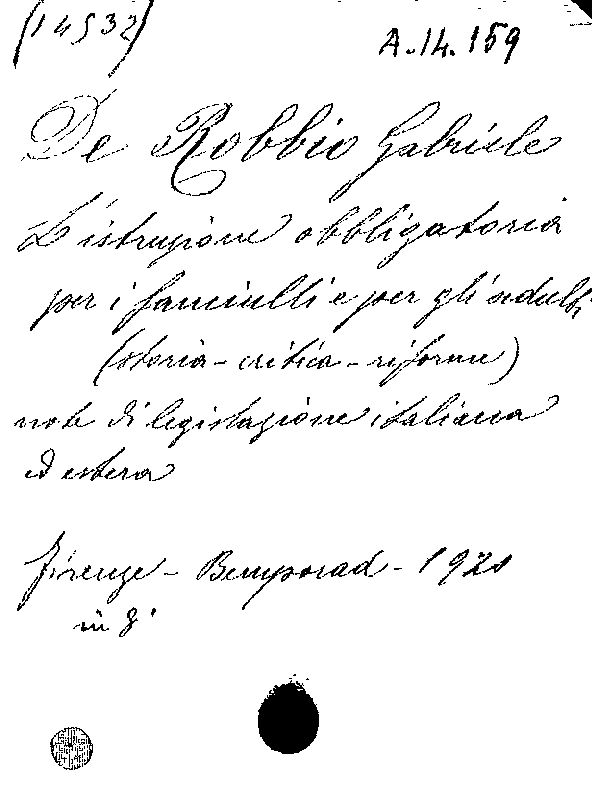 (14532)
A.14.159
De Robbio Gabriele
L'istruzione obbligatoria
per i fanciulli e per gli adulti
(storia - critica - riforme)
note di legislazione italiana
ed estera
Firenze - Bemporad - 1920
in 8°